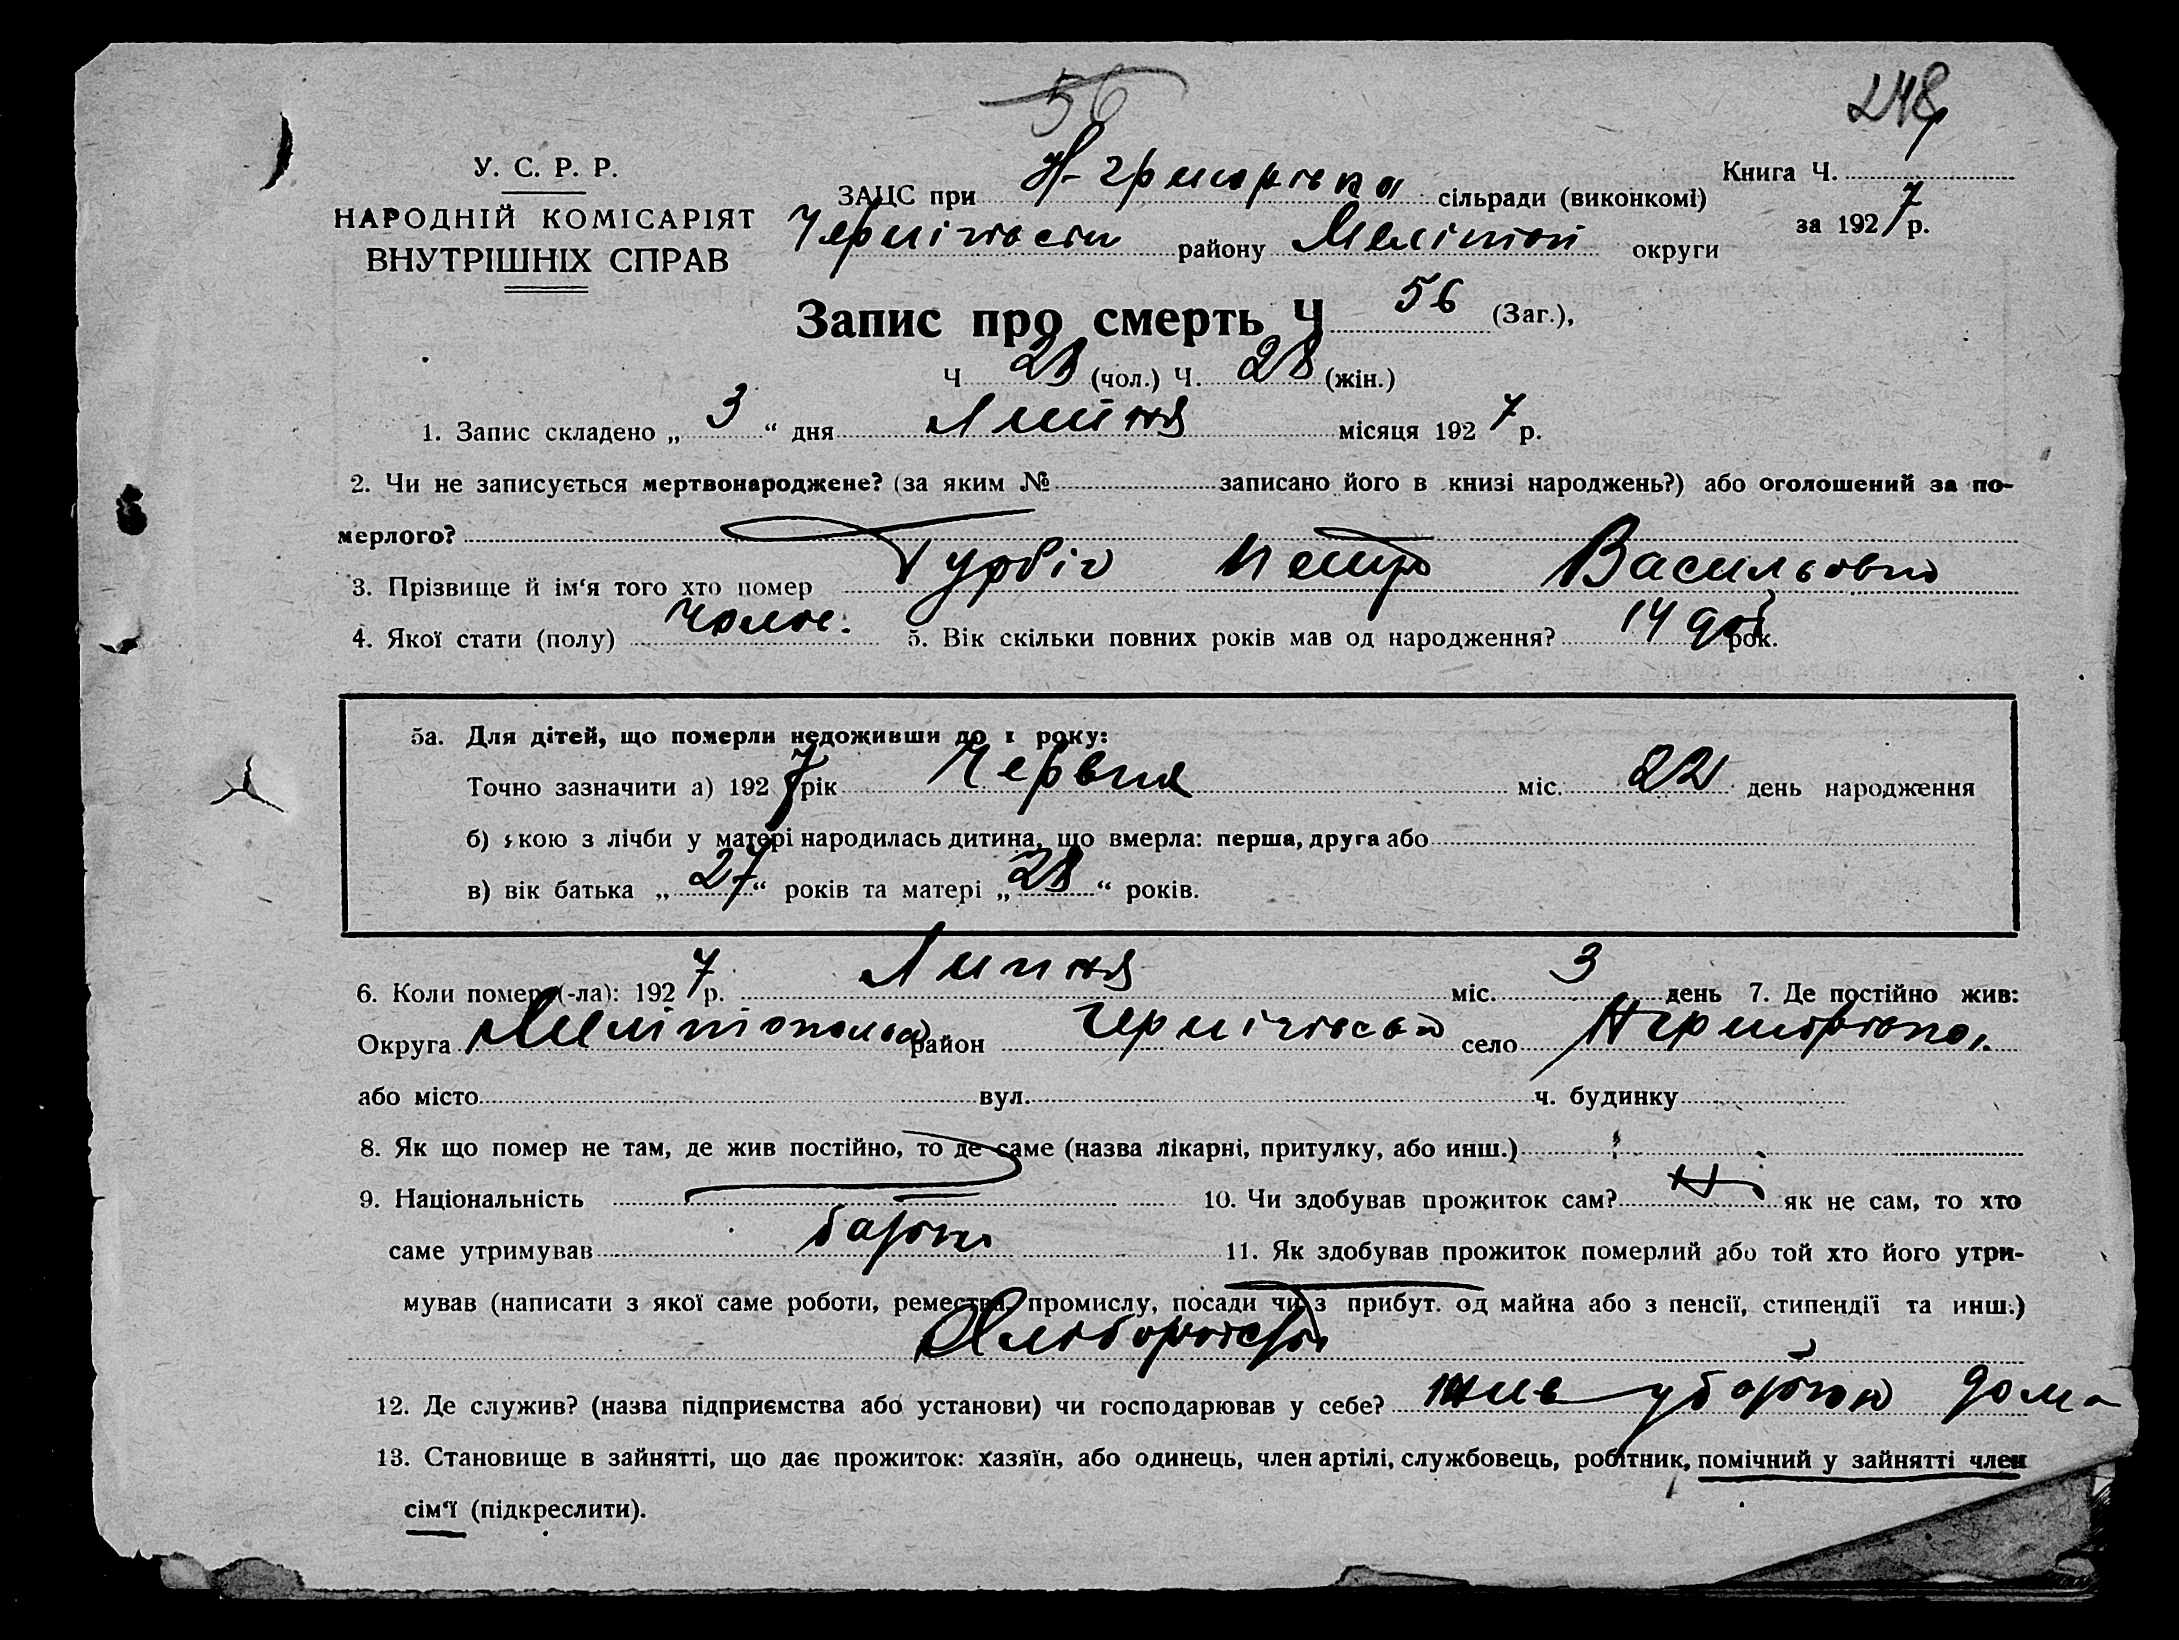 56
248
У. С. Р. Р.
НАРОДНІЙ КОМІСАРІЯТ
ВНУТРІШНІХ СПРАВ
ЗАЦС при Н-григорівка сільради (виконкомі)
Книга Ч.
за 1927 р.
району Мелітоп округи
Запис про смерть Ч 56 (Заг.),
Ч 28 (чол.) Ч. 28 (жін.)
1. Запис складено „ 3 “ дня Липня місяця 1927 р.
2. Чи не записується мертвонароджене? (за яким № записано його в книзі народжень?) або оголошений за по-
мерлого?
3. Прізвище й ім‘я того хто помер Петро Васильович
4. Якої стати (полу) чолов. 5. Вік скільки повних років мав од народження? 14 доб рок.
5а. Для дітей, що померли недоживши до 1 року:
Точно зазначити а) 1927 рік Червня міс. 22 день народження
б) якою з лічби у матері народилась дитина, що вмерла: перша, друга або
в) вік батька „ 27 “ років та матері „ 28 “ років.
6. Коли помер (-ла): 1927 р. Липня міс. 3 день 7. Де постійно жив:
Округа Мелітопольск район село
або місто вул. ч. будинку
8. Як що помер не там, де жив постійно, то де саме (назва лікарні, притулку, або инш.)
9. Національність 10. Чи здобував прожиток сам? Ні як не сам, то хто
саме утримував батьки 11. Як здобував прожиток померлий або той хто його утри-
мував (написати з якої саме роботи, ремества, промислу, посади чи з прибут. од майна або з пенсії, стипендії та инш.)
Хліборобство
12. Де служив? (назва підприємства або установи) чи господарював у себе? жив у батьків дома
13. Становище в зайнятті, що дає прожиток: хазяїн, або одинець, член артілі, службовець, робітник, помічний у зайнятті член
сім‘ї (підкреслити).